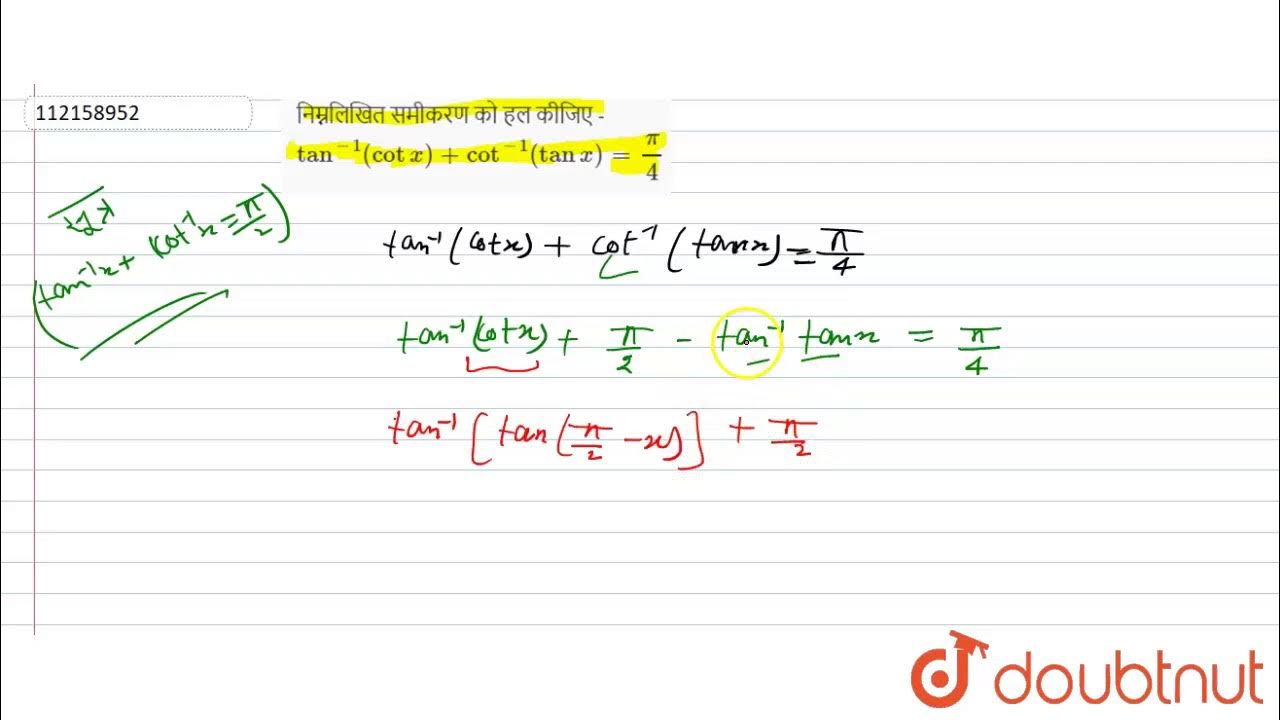 112158952
निम्नलिखित समीकरण को हल कीजिए -
tan⁻¹(cot x) + cot⁻¹(tan x) = π/4
tan⁻¹x + cot⁻¹x = π/2
tan⁻¹(cotx) + cot⁻¹(tanx) = π/4
tan⁻¹(cotx) + π/2 - tan⁻¹ tanx = π/4
tan⁻¹[tan(π/2 - x)] + π/2
doubtnut